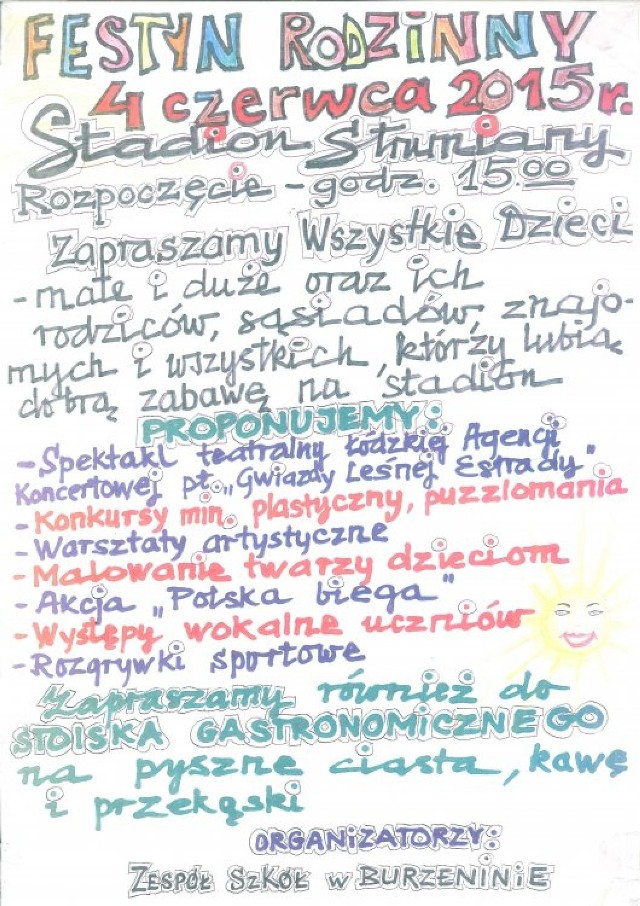 FESTYN RODZINNY
4 czerwca 2015 r.
Stadion Strumiany
Rozpoczęcie - godz. 15.00
Zapraszamy Wszystkie Dzieci
- małe i duże oraz ich
rodziców, sąsiadów, znajo-
mych i wszystkich, którzy lubią
dobrą zabawę na stadion
PROPONUJEMY:
- Spektakl teatralny Łódzkiej Agencji
Koncertowej pt. „Gwiazdy Leśnej Estrady"
- Konkursy min. plastyczny, puzzlomania
- Warsztaty artystyczne
- Malowanie twarzy dzieciom
- Akcja „Polska biega"
- Występy wokalne uczniów
- Rozgrywki sportowe
Zapraszamy również do
STOISKA GASTRONOMICZNEGO
na pyszne ciasta, kawę
i przekąski
ORGANIZATORZY:
ZESPÓŁ SZKÓŁ W BURZENINIE